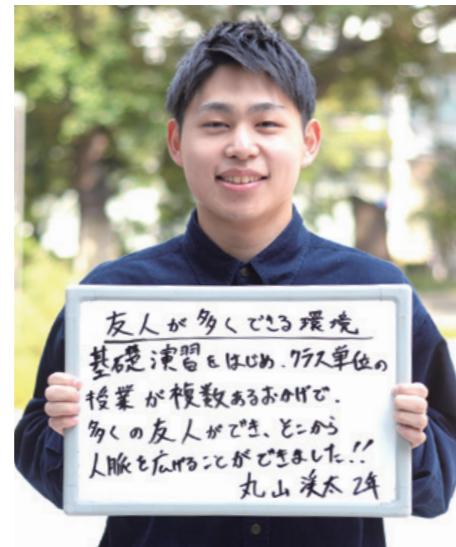 友人が多くできる環境
基礎演習をはじめ、クラス単位の
授業が複数あるおかげで、
多くの友人ができ、そこから
人脈を広げることができました!!
丸山 渓太 2年